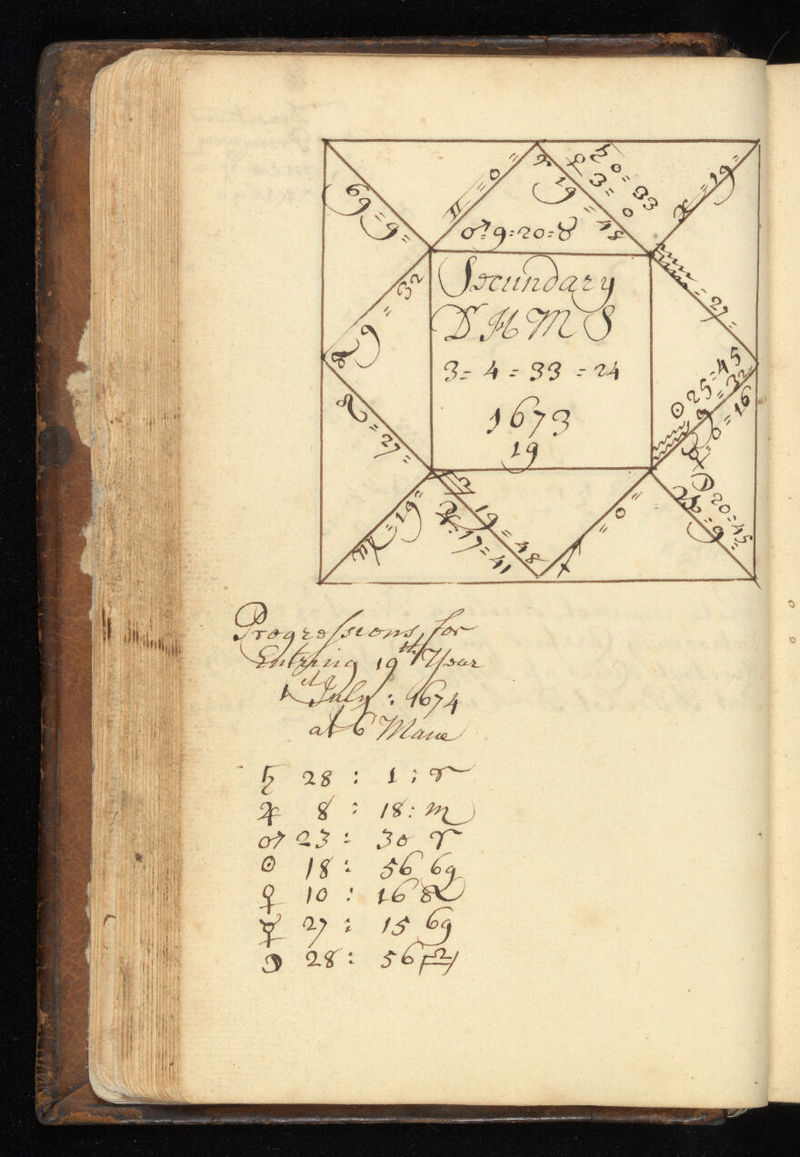 ♊ = 0 =
♈ 19 = 48
♄ 0 = 33
♀ 3 = 0
♓ = 19 =
♋ = 9 =
♂ = 9 = 20 = ♉
♉ 9 = 32
Secundary
D H M S
3 = 4 = 33 = 24
1673
19
♒ = 27 =
☉ 25 = 45
♒ 9 = 32
☿ = 0 = 16
☽ 20 = 45
♑ = 9 =
♌ = 27 =
♍ = 19 =
♎ 19 = 48
♃ : 17 = 41
♐ = 0 =
Progressions for
Entring 19th Year
1st July : 1674
at 6 Mane
♄ 28 : 1 : ♈
♃ 8 : 18 : ♏
♂ 23 : 30 ♈
☉ 18 : 56 ♋
♀ 10 : 16 ♌
☿ 27 : 15 ♋
☽ 28 : 56 ♎